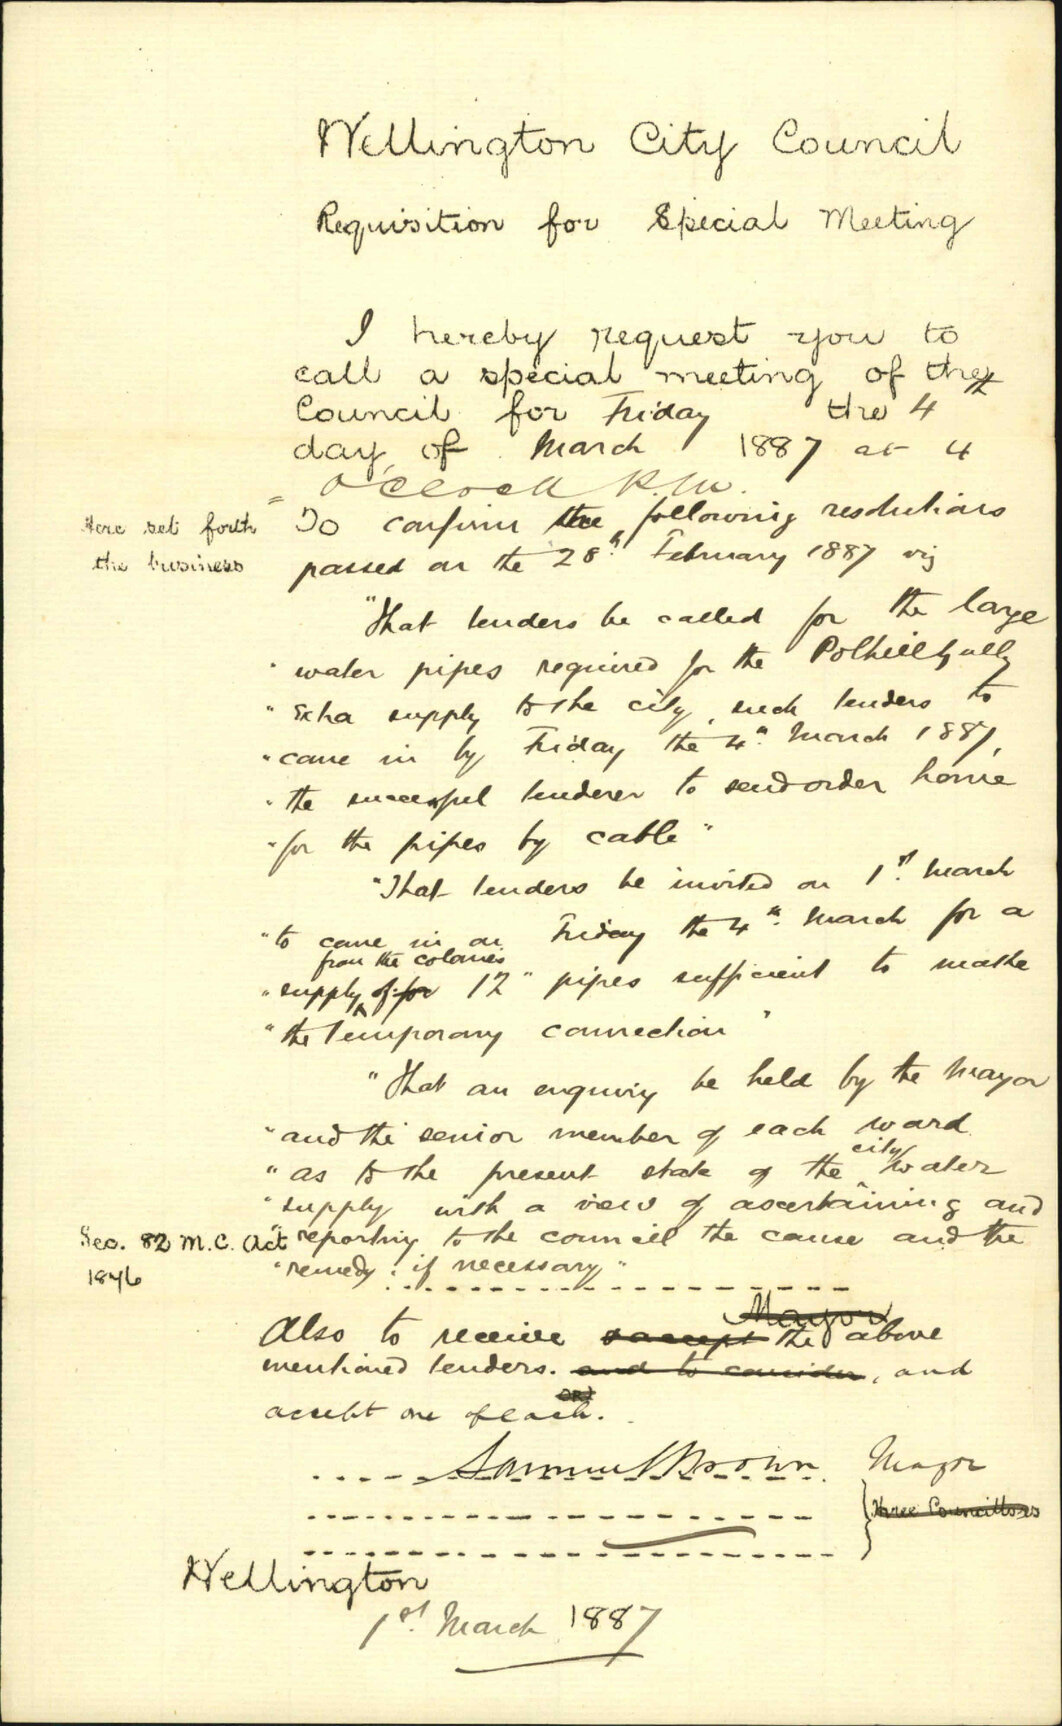 Wellington City Council
Requisition for Special Meeting
I hereby request you to
call a special meeting of the
Council for Friday the 4th
day of March 1887 at 4
O'Clock P.M.
Here set forth
the business
To confirm the following resolutions
passed on the 28th February 1887 viz
"That tenders be called for the large
" water pipes required for the Polhill Gully
" Extra supply to the city, such tenders to
" come in by Friday the 4th March 1887,
" the successful tenderer to send order home
" for the pipes by cable"
"That tenders be invited on 1st March
" to come in on Friday the 4th March for a
from the colonies
" supply of for 12" pipes sufficient to make
" the temporary connection"
"That an enquiry be held by the Mayor
" and the senior member of each ward
city
" as to the present state of the water
" supply with a view of ascertaining and
Sec. 82 M.C. Act
1876
" reporting to the council the cause and the
" remedy: if necessary"
Mayor
Also to receive & accept the above
mentioned tenders. and to consider, and
accept one of each.
Samuel Brown Mayor
three Councillors
Wellington
1st March 1887